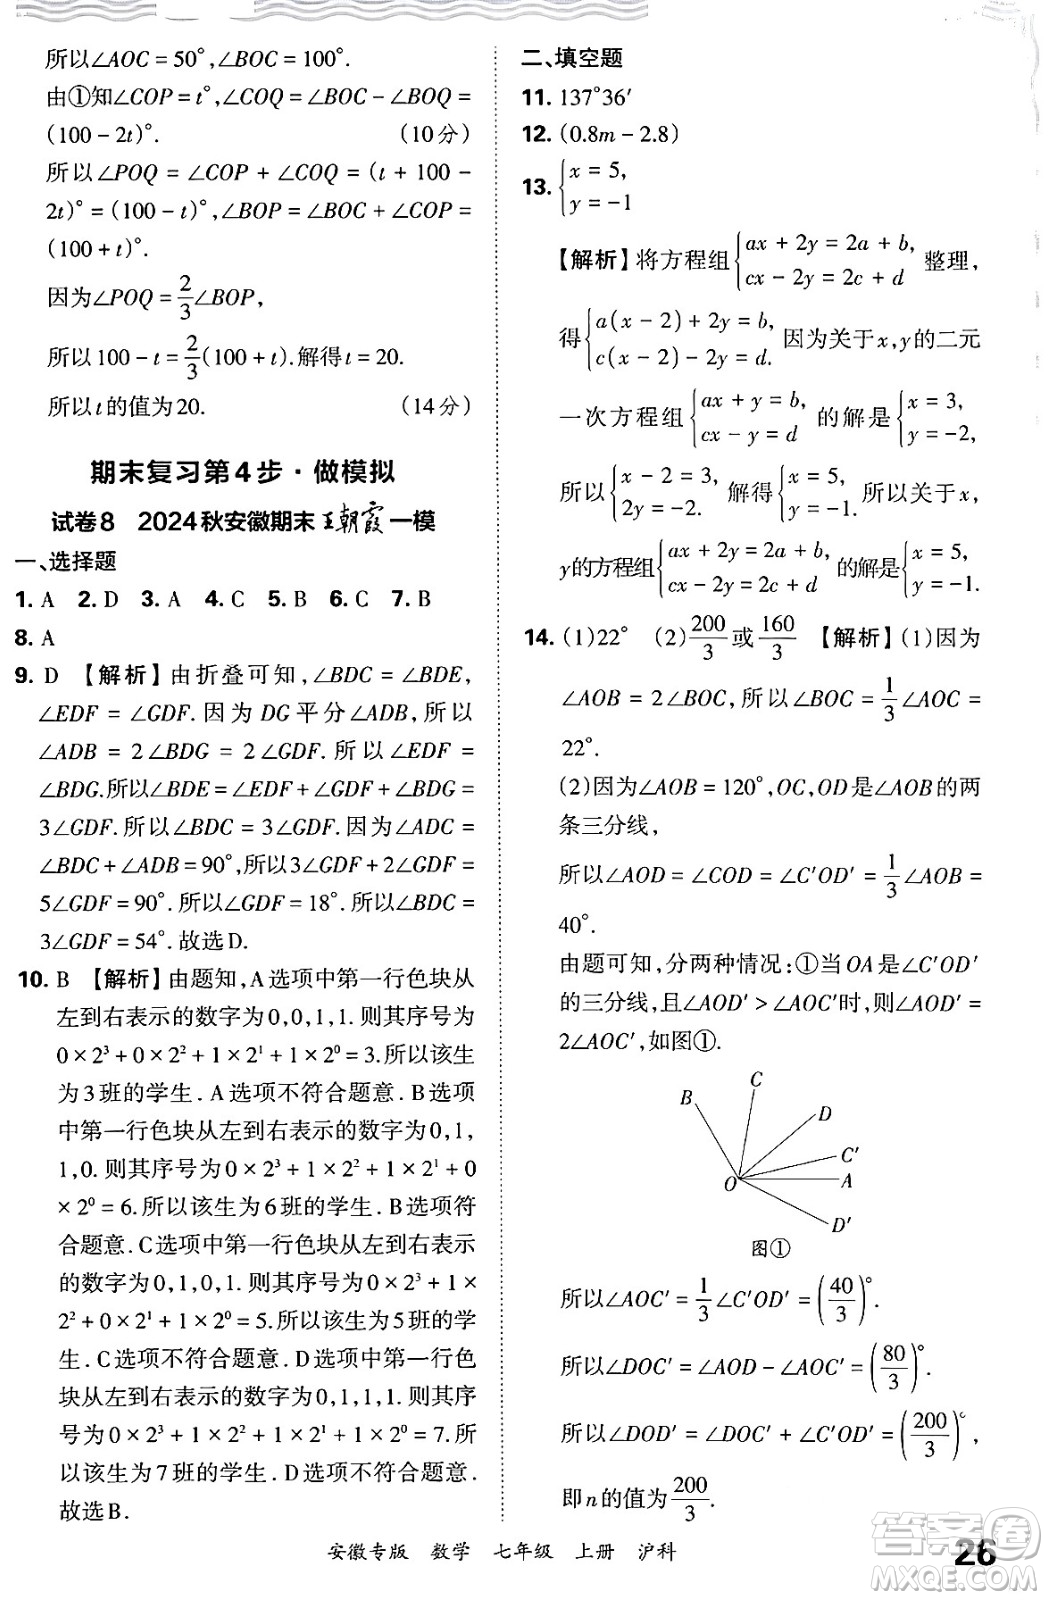 所以∠AOC = 50°,∠BOC = 100°.
由①知∠COP = t°,∠COQ = ∠BOC - ∠BOQ =
(100 - 2t)°. (10分)
所以∠POQ = ∠COP + ∠COQ = (t + 100 -
2t)° = (100 - t)°,∠BOP = ∠BOC + ∠COP =
(100 + t)°.
因为∠POQ = 2/3∠BOP,
所以100 - t = 2/3(100 + t).解得t = 20.
所以t的值为20. (14分)
期末复习第4步·做模拟
试卷8 2024秋安徽期末王朝霞一模
一、选择题
1. A 2. D 3. A 4. C 5. B 6. C 7. B
8. A
9. D 【解析】由折叠可知,∠BDC = ∠BDE,
∠EDF = ∠GDF.因为DG平分∠ADB,所以
∠ADB = 2∠BDG = 2∠GDF.所以∠EDF =
∠BDG.所以∠BDE = ∠EDF + ∠BDG + ∠GDF =
3∠GDF.所以∠BDC = 3∠GDF.因为∠ADC =
∠BDC + ∠ADB = 90°,所以3∠GDF + 2∠GDF =
5∠GDF = 90°.所以∠GDF = 18°.所以∠BDC =
3∠GDF = 54°.故选D.
10. B 【解析】由题知,A选项中第一行色块从
左到右表示的数字为0,0,1,1.则其序号为
0 × 2³ + 0 × 2² + 1 × 2¹ + 1 × 2⁰ = 3.所以该生
为3班的学生. A选项不符合题意. B选项
中第一行色块从左到右表示的数字为0,1,
1,0. 则其序号为0 × 2³ + 1 × 2² + 1 × 2¹ + 0
× 2⁰ = 6.所以该生为6班的学生. B选项符
合题意. C选项中第一行色块从左到右表示
的数字为0,1,0,1. 则其序号为0 × 2³ + 1 ×
2² + 0 × 2¹ + 1 × 2⁰ = 5.所以该生为5班的学
生. C选项不符合题意. D选项中第一行色
块从左到右表示的数字为0,1,1,1.则其序号
为0 × 2³ + 1 × 2² + 1 × 2¹ + 1 × 2⁰ = 7.所
以该生为7班的学生. D选项不符合题意.
故选B.
二、填空题
11. 137°36′
12. (0.8m - 2.8)
13. {x = 5, y = -1
【解析】将方程组{ax + 2y = 2a + b, cx - 2y = 2c + d 整理,
得{a(x - 2) + 2y = b, c(x - 2) - 2y = d. 因为关于x,y的二元
一次方程组{ax + y = b, cx - y = d 的解是{x = 3, y = -2,
所以{x - 2 = 3, 2y = -2. 解得{x = 5, y = -1. 所以关于x,
y的方程组{ax + 2y = 2a + b, cx - 2y = 2c + d 的解是{x = 5, y = -1.
14. (1)22° (2)200/3或160/3 【解析】(1)因为
∠AOB = 2∠BOC,所以∠BOC = 1/3∠AOC =
22°.
(2)因为∠AOB = 120°,OC,OD是∠AOB的两
条三分线,
所以∠AOD = ∠COD = ∠C′OD′ = 1/3∠AOB =
40°.
由题可知,分两种情况:①当OA是∠C′OD′
的三分线,且∠AOD′ > ∠AOC′时,则∠AOD′ =
2∠AOC′,如图①.
B
C
D
C′
A
O
D′
图①
所以∠AOC′ = 1/3∠C′OD′ = (40/3)°.
所以∠DOC′ = ∠AOD - ∠AOC′ = (80/3)°.
所以∠DOD′ = ∠DOC′ + ∠C′OD′ = (200/3)°,
即n的值为200/3.
安徽专版 数学 七年级 上册 沪科
26
答案圈
MXQE.COM